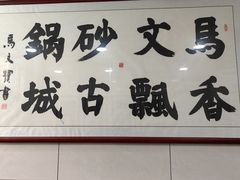 馬文砂鍋
香飄古城
馬 書